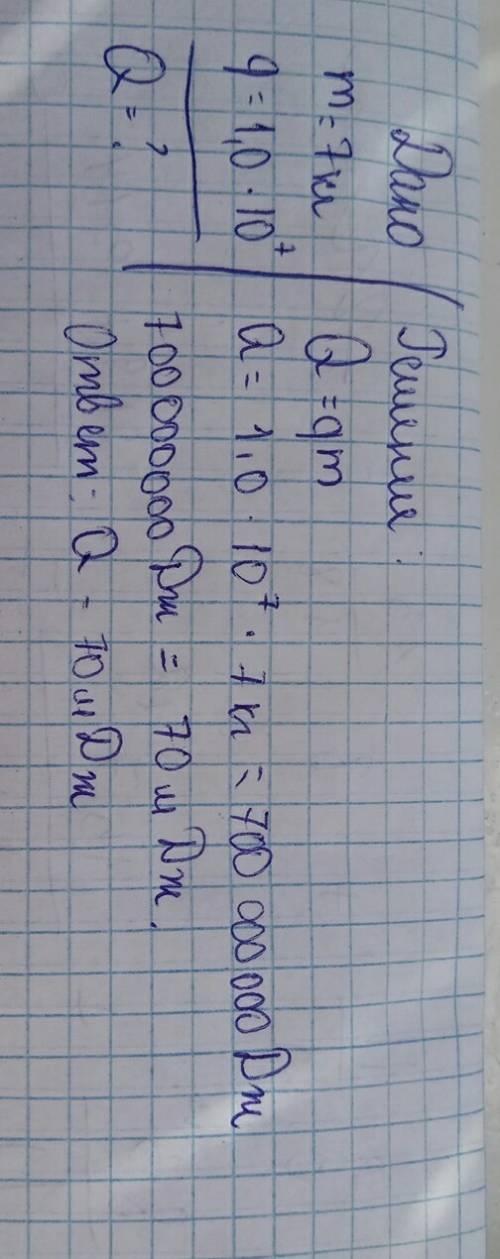 Дано
m = 7 кг
q = 1,0 · 10⁷
Q = ?
Решение:
Q = qm
Q = 1,0 · 10⁷ · 7 кг = 700 000 000 Дж
700000000 Дж = 70 м Дж.
Ответ: Q = 70 м Дж